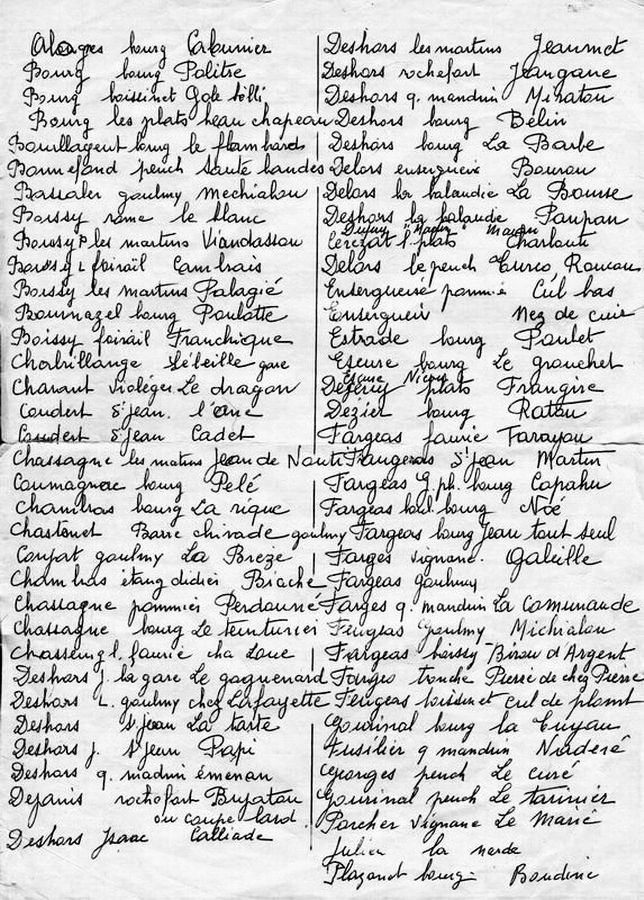 bourg Cabunier
Bourg bourg Politre
Bourg boissinet Gobe
Bourg les plats beau chapeau
bourg le flambard
Bonnefond peuch Saute bandes
Bassaler gaulmy Mechialou
Boissy rome le blanc
les martins Viandassou
foirail Cambrais
Boissy les martins Palagié
Bournazel bourg Poulotte
Boissy foirail Franchique
Chabrillange Léleille gare
Chavant violèges Le dragon
Coudert St jean l'ane
Coudert St jean Cadet
Chassagne les martins Jean de Nauti
Coumagnac bourg Pelé
Chambras bourg La rique
Chastanet Barre chivade gaulmy
Confort gaulmy La Breze
Chambras étang didier Biache
Chassagne pommier Perdouné
Chassagne bourg Le teinturier
faurie cha Loue
Deshors J. la gare Le gaguenard
Deshors L. gaulmy chez Lafayette
Deshors St jean La tarte
Deshors J. St jean Papi
Deshors q. madrin émenan
Dejanis rochefort Bujatou
ou coupe lard
Deshors Isaac Calliade
Deshors les martins Jeaunet
Deshors rochefort Jeangane
Deshors q. mandrin Miratou
Deshors bourg Bélin
Deshors bourg La Barbe
Delors ensergueix Bourou
Delors la balaudie La Bourse
Deshors la balaudie Poupou
plats
Delors le peuch Turco, Roucau
pommié Cul bas
Ensergueix Nez de cuir
Estrade bourg Poulet
bourg Le grouchet
plats Frangire
Dezier bourg Ratou
Fargeas faurie Farayou
St jean Martin
Fargeas G. ph. bourg Capahu
Fargeas boul. bourg Noé
Fargeas bourg Jean tout seul
Farges vignane. Gabeille
Fargeas gaulmy
Farges q. mandrin La Commande
Feugeas gaulmy Michialou
Fargeas boissy Birou d'Argent
Farges tronche Pierre de chez Pierre
Feugeas boisinet cul de plomb
Gourinal bourg la Cuyau
Fusilier q mandrin Naderé
Georges peuch Le curé
Gourinal peuch Le tarinier
Porcher vignane Le Marié
Julien la merde
Plazanet bourg Boudine